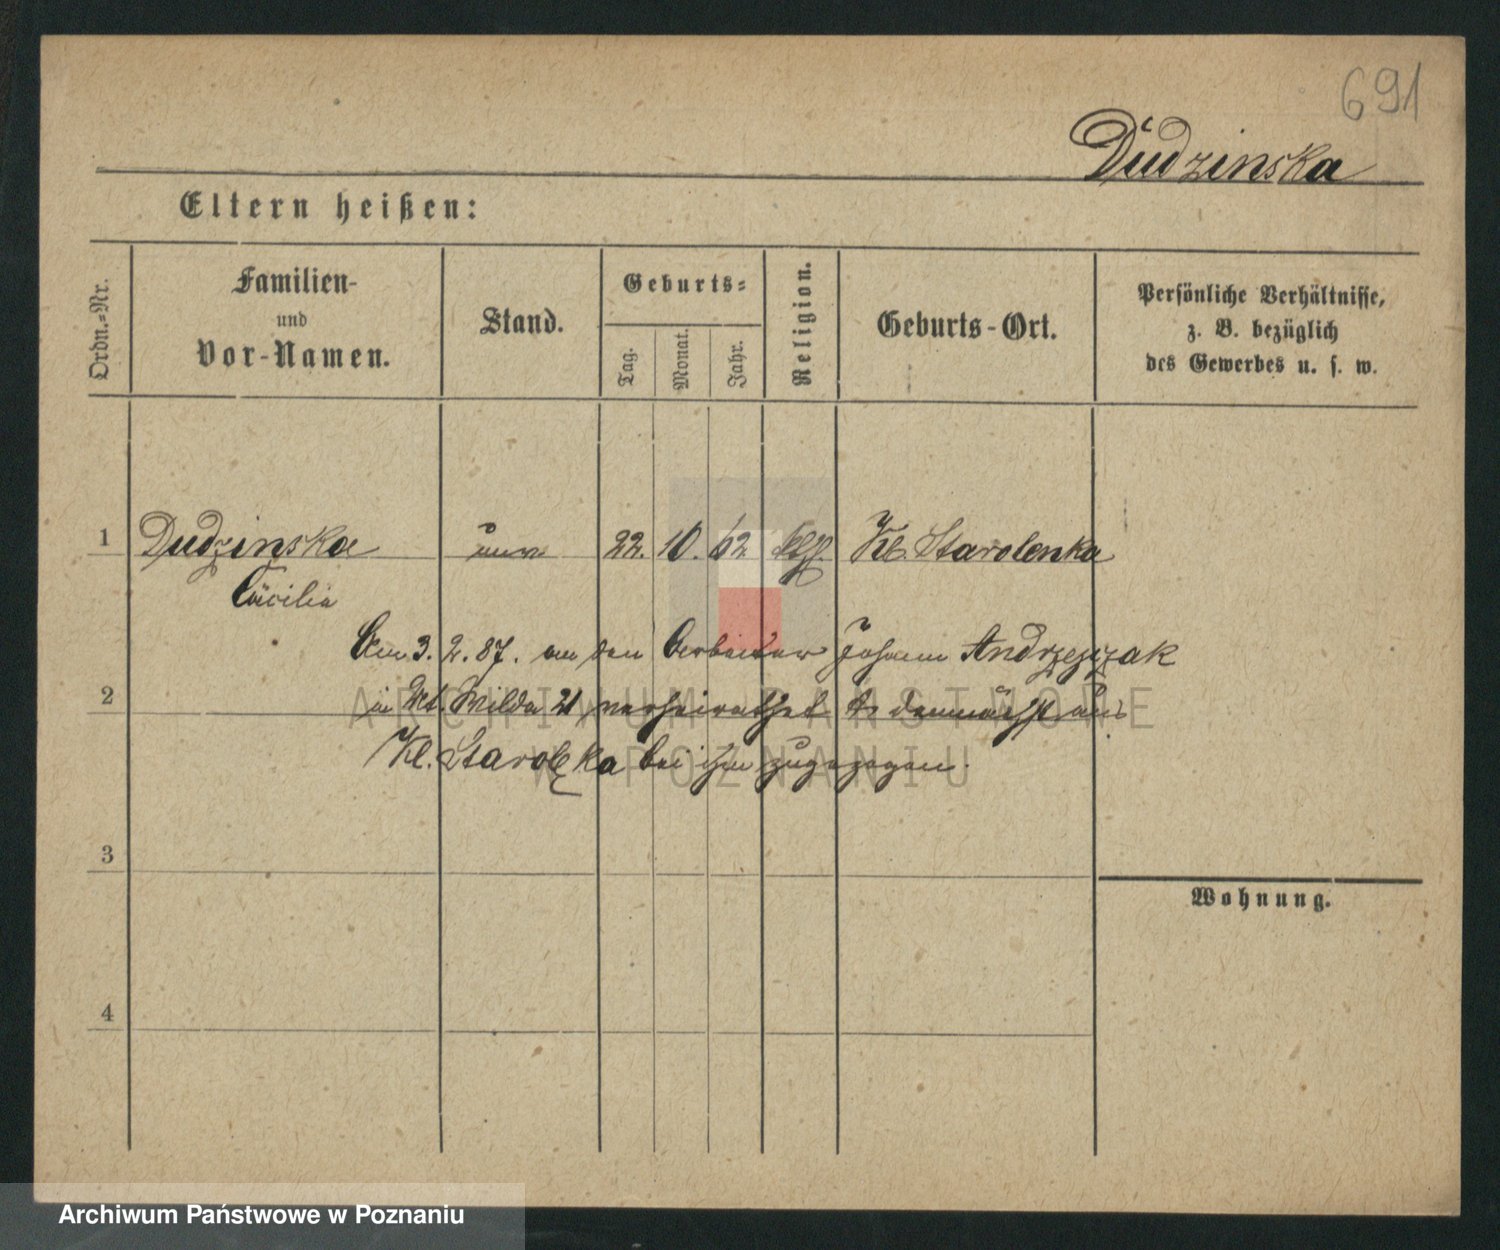 691
Dudzinska
Eltern heißen:
Ordn.=Nr.
Familien-
und
Vor-Namen.
Stand.
Geburts=
Tag.
Monat.
Jahr.
Religion.
Geburts-Ort.
Persönliche Verhältnisse,
z. B. bezüglich
des Gewerbes u. s. w.
1 Dudzinska unv 22. 10. 62 kth Kl. Starolenka
Cäcilia
Am 3. 2. 87. an den Arbeiter Johann Andrzejczak
2 in Wilda 21 verheirathet & demnächst aus
Kl. Starolęka bei ihm zugezogen.
3
Wohnung.
4
ARCHIWUM PAŃSTWOWE
W POZNANIU
Archiwum Państwowe w Poznaniu